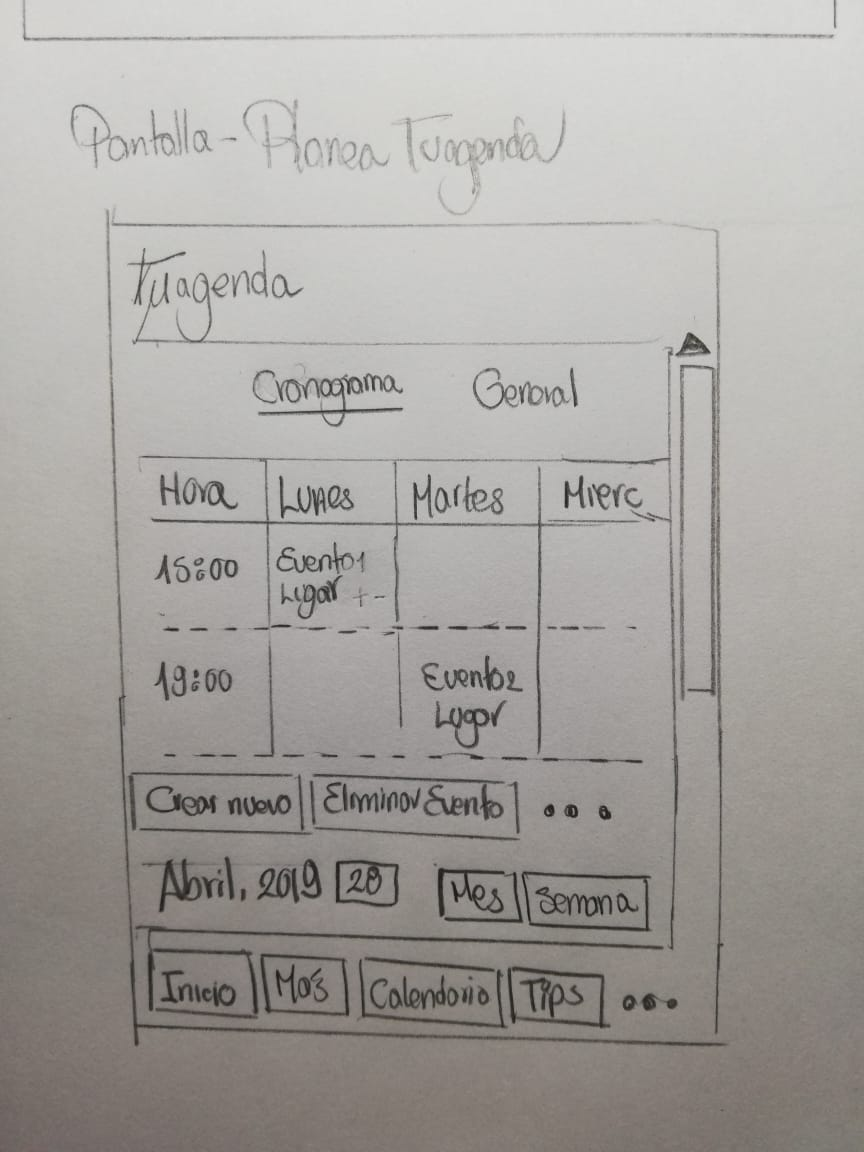 Pantalla - Planea Tuagenda
Tuagenda
Cronograma General
Hora Lunes Martes Mierc
15:00 Evento1
Lugar + -
19:00 Evento2
Lugar
Crear nuevo Eliminar Evento ...
Abril, 2019 28 Mes Semana
Inicio Calendario Tips ...